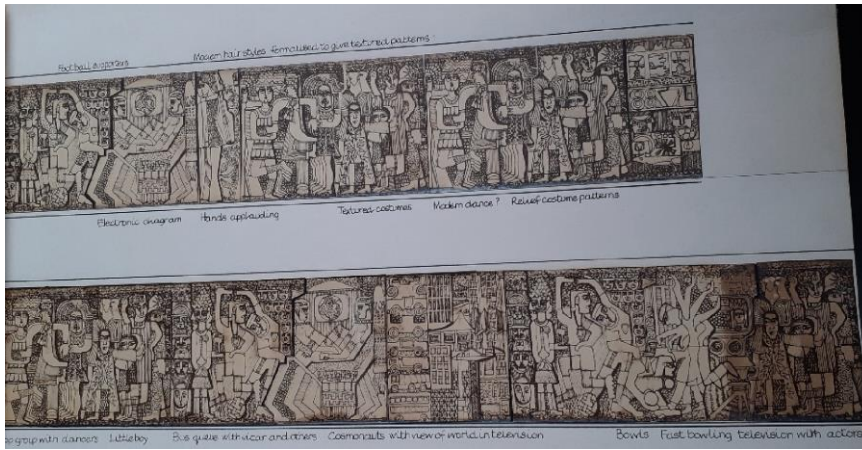 Football supporters Modern hair styles formalised to give textured patterns
Electronic diagram Hands applauding Textured costumes Modern dance? Relief costume patterns
group with dancers Little boy Bus queue with vicar and others Cosmonauts with view of world in television Bowls Fast bowling television with actors